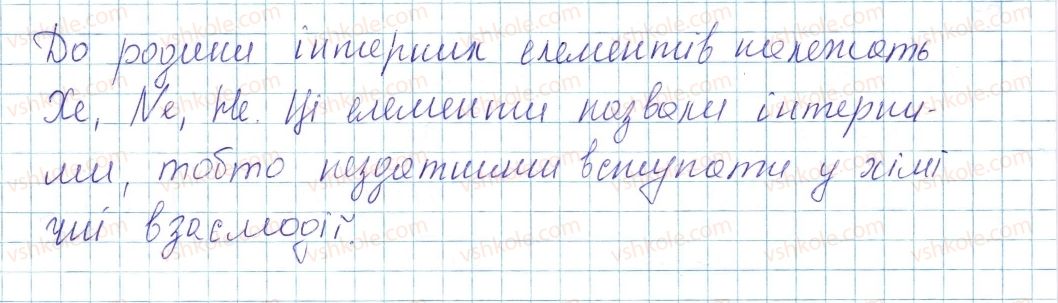 До родини інтерних елементів належать
Xe, Ne, He. Ці елементи назвали інтерни-
ми, тобто нездатними вступати у хімі
чні взаємодії.